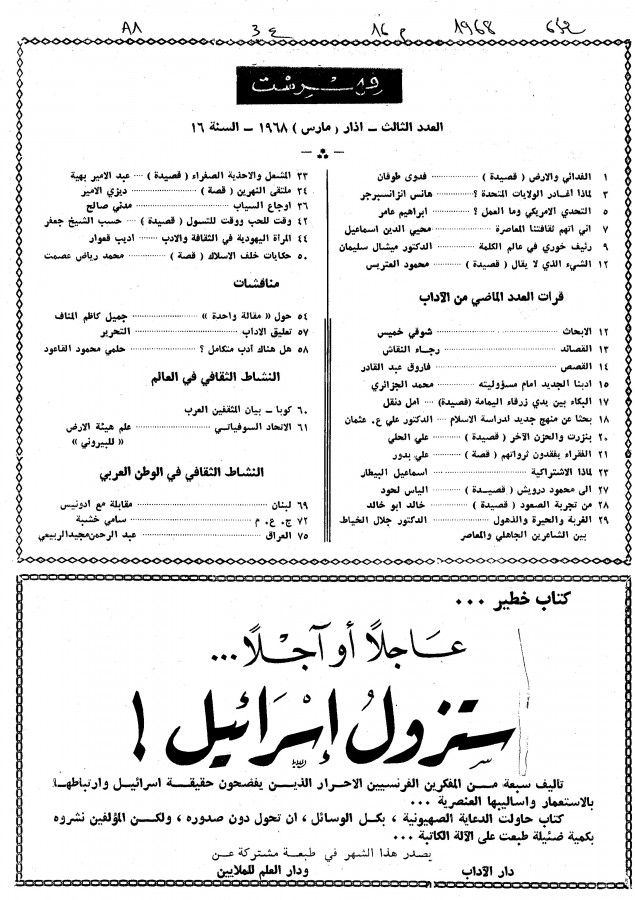 ٨٨ ع 3 م 16 1968
فهرست
العدد الثالث – اذار ( مارس ) ١٩٦٨ – السنة ١٦
١ الفدائي والارض ( قصيدة ) فدوى طوقان
٣ لماذا أغادر الولايات المتحدة ؟ هانس انزانسبرجر
٥ التحدي الامريكي وما العمل ؟ ابراهيم عامر
٧ اني اتهم ثقافتنا المعاصرة محيي الدين اسماعيل
٩ رئيف خوري في عالم الكلمة الدكتور ميشال سليمان
١٢ الشيء الذي لا يقال ( قصيدة ) محمود العتريس
قرات العدد الماضي من الآداب
١٢ الابحاث شوقي خميس
١٣ القصائد رجاء النقاش
١٤ القصص فاروق عبد القادر
١٥ ادبنا الجديد امام مسؤوليته محمد الجزائري
١٧ البكاء بين يدي زرقاء اليمامة (قصيدة) امل دنقل
١٨ بحثا عن منهج جديد لدراسة الاسلام الدكتور علي ع. عثمان
٢٠ بنزرت والحزن الآخر ( قصيدة ) علي الحلي
٢١ الفقراء يفقدون ثرواتهم ( قصة ) علي بدور
٢٣ لماذا الاشتراكية اسماعيل البيطار
٢٧ الى محمود درويش ( قصيدة ) الياس لحود
٢٨ من تجربة الصعود ( قصيدة ) خالد ابو خالد
٢٩ الغربة والحيرة والذهول الدكتور جلال الخياط
بين الشاعرين الجاهلي والمعاصر
٣٣ المشعل والاحذية الصفراء ( قصيدة ) عبد الامير بهية
٣٤ ملتقى النهرين ( قصة ) ديزي الامير
٣٦ اوجاع السياب مدني صالح
٤٢ وقت للحب ووقت للتسول ( قصيدة ) حسب الشيخ جعفر
٤٤ المرأة اليهودية في الثقافة والادب اديب قعوار
٥٠ حكايات خلف الاسلاك ( قصة ) محمد رياض عصمت
مناقشات
٥٤ حول « مقالة واحدة » جميل كاظم المناف
٥٧ تعليق الآداب التحرير
٥٨ هل هناك أدب متكامل ؟ حلمي محمود القاعود
النشاط الثقافي في العالم
٦٠ كوبا – بيان المثقفين العرب
٦١ الاتحاد السوفياتي علم هيئة الارض
« للبيروني »
النشاط الثقافي في الوطن العربي
٦٩ لبنان مقابلة مع ادونيس
٧٢ ج. ع. م سامي خشبة
٧٥ العراق عبد الرحمن مجيد الربيعي
كتاب خطير ...
عاجلاً أو آجلاً ...
ستزول إسرائيل !
تاليف سبعة من المفكرين الفرنسيين الاحرار الذين يفضحون حقيقة اسرائيل وارتباطها
بالاستعمار واساليبها العنصرية ...
كتاب حاولت الدعاية الصهيونية ، بكل الوسائل ، ان تحول دون صدوره ، ولكن المؤلفين نشروه
بكمية ضئيلة طبعت على الآلة الكاتبة ...
يصدر هذا الشهر في طبعة مشتركة عن
دار الآداب ودار العلم للملايين